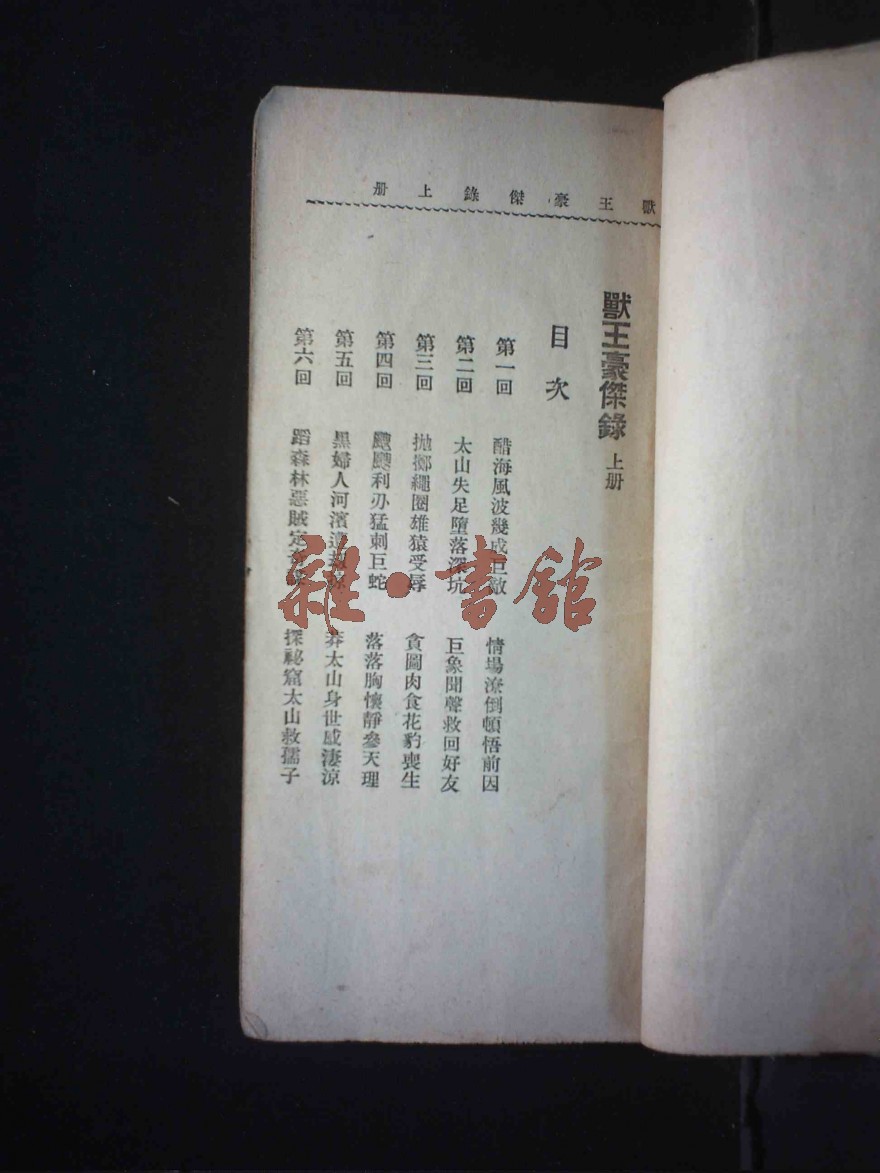 獸王豪傑錄上册
獸王豪傑錄 上册
目次
第一回 醋海風波幾成巨敵 情場潦倒頓悟前因
第二回 太山失足墮落深坑 巨象聞聲救回好友
第三回 拋擲繩圈雄猿受辱 貪圖肉食花豹喪生
第四回 颼颼利刃猛刺巨蛇 落落胸懷靜參天理
第五回 黑婦人河濱 莽太山身世感淒涼
第六回 蹈森林惡賊定 探祕窟太山救孺子
雜·書館